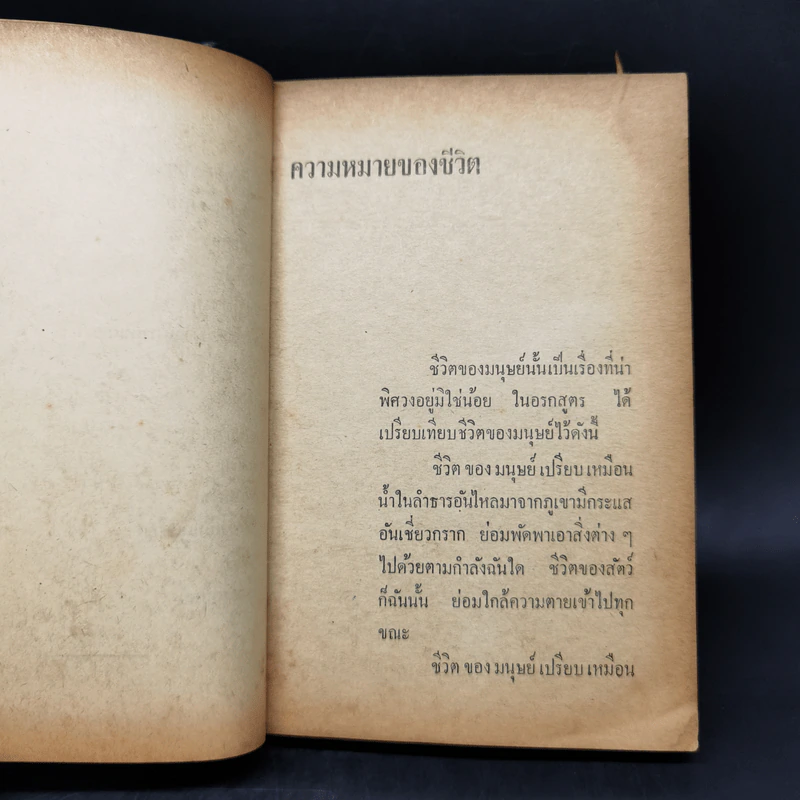 ความหมายของชีวิต
ชีวิตของมนุษย์นั้นเป็นเรื่องที่น่า
พิศวงอยู่มิใช่น้อย ในอรกสูตร ได้
เปรียบเทียบชีวิตของมนุษย์ไว้ดังนี้
ชีวิต ของ มนุษย์ เปรียบ เหมือน
น้ำในลำธารอันไหลมาจากภูเขามีกระแส
อันเชี่ยวกราก ย่อมพัดพาเอาสิ่งต่าง ๆ
ไปด้วยตามกำลังฉันใด ชีวิตของสัตว์
ก็ฉันนั้น ย่อมใกล้ความตายเข้าไปทุก
ขณะ
ชีวิต ของ มนุษย์ เปรียบ เหมือน